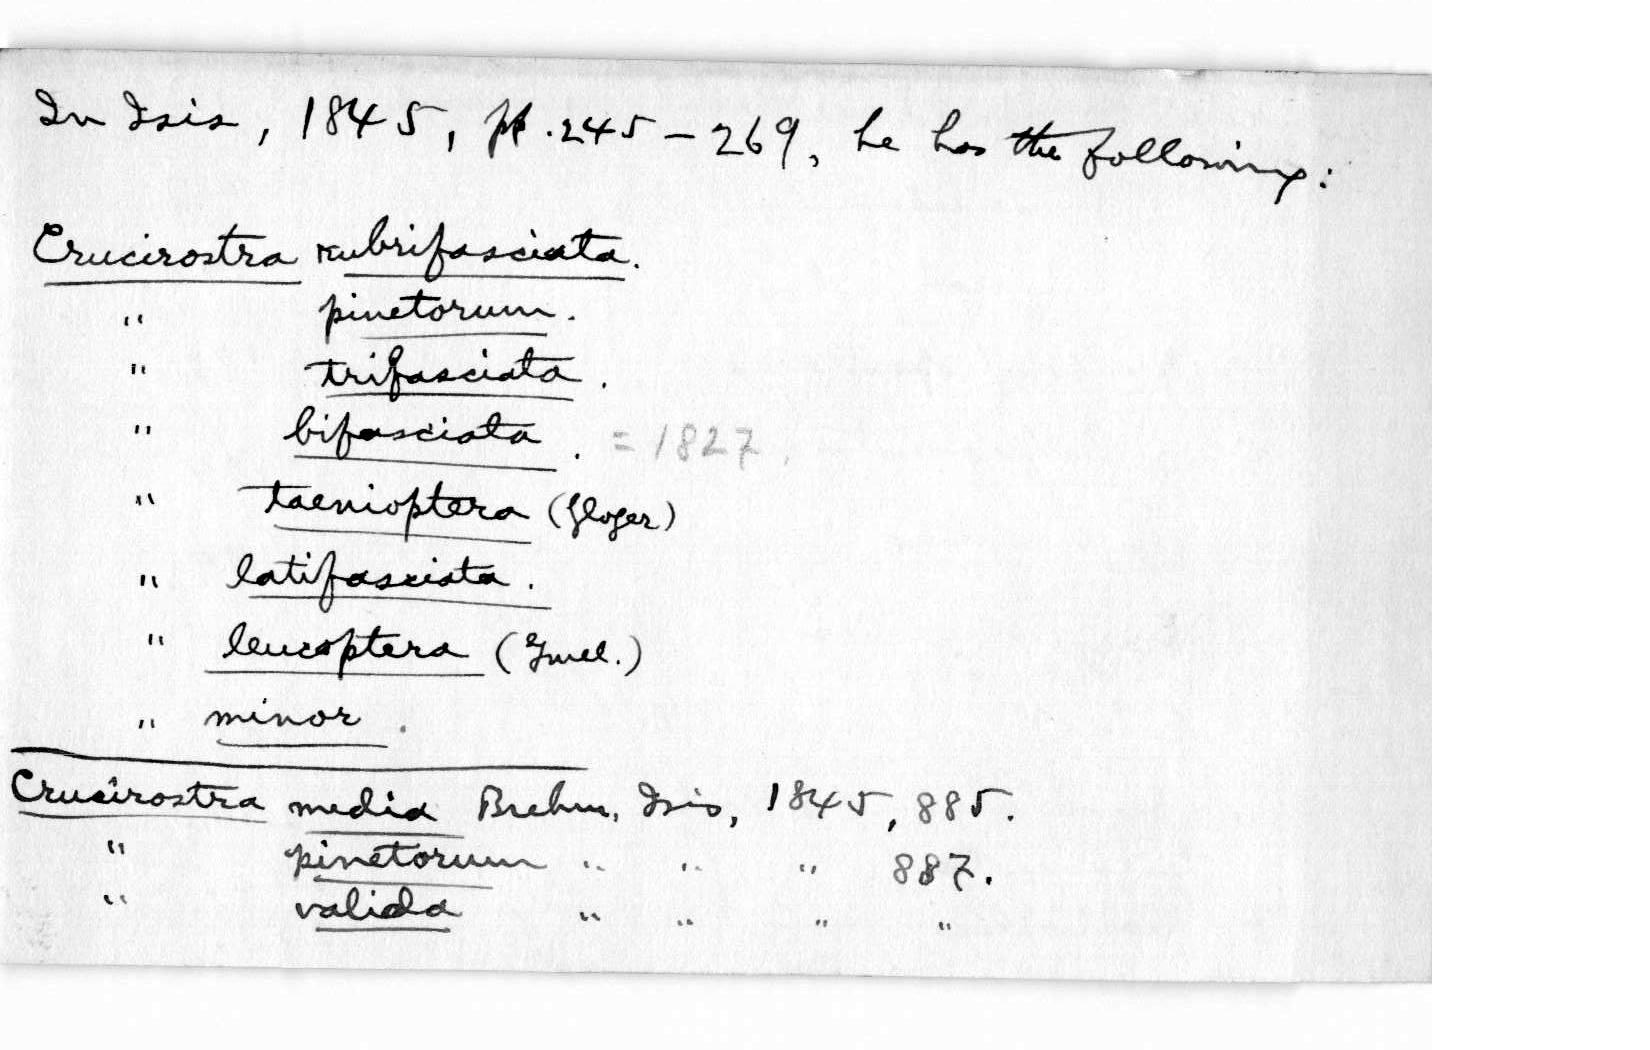 In Isis, 1845, pp. 245-269, he has the following:
Crucirostra rubrifasciata.
" pinetorum.
" trifasciata.
" bifasciata. = 1827.
" taenioptera (Gloger)
" latifasciata.
" leucoptera (Gmel.)
" minor.
Crucirostra media Brehm, Isis, 1845, 885.
" pinetorum " " " 887.
" valida " " " "